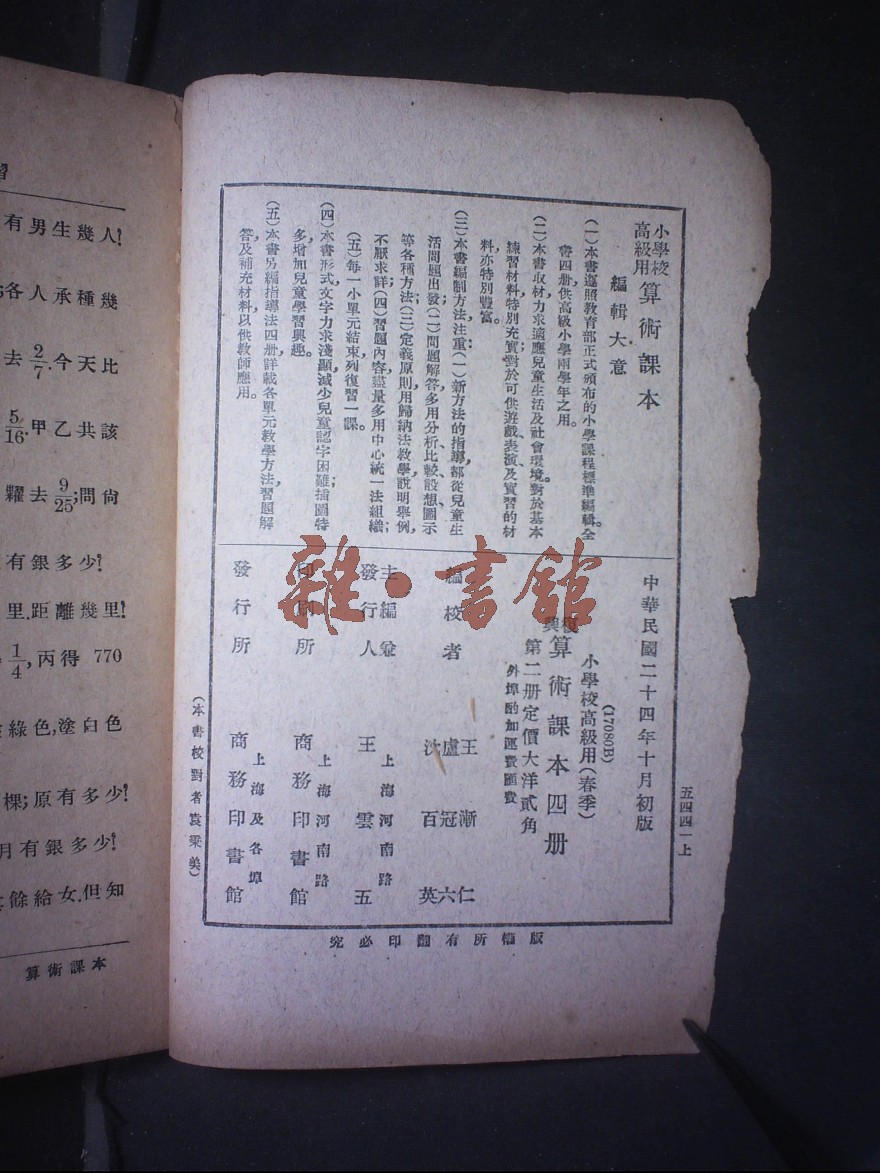 小學校高級用 算術課本
編輯大意
(一)本書遵照教育部正式頒布的小學課程標準編輯。全
書四册供高級小學兩學年之用。
(二)本書取材力求適應兒童生活及社會環境。對於基本
練習材料,特別充實;對於可供遊戲、表演及實習的材
料亦特別豐富。
(三)本書編制方法注重:(一)新方法的指導,都從兒童生
活問題出發;(二)問題解答,多用分析、比較、設想、圖示
等各種方法;(三)定義原則,用歸納法教學,說明舉例,
不厭求詳;(四)習題內容,盡量多用中心統一法組織;
(五)每一小單元結束,列復習一課。
(四)本書形式文字力求淺顯,減少兒童認字困難;插圖特
多,增加兒童學習興趣。
(五)本書另編指導法四册,詳載各單元教學方法,習題解
答,及補充材料,以供教師應用。
中華民國二十四年十月初版
(17080B)
小學校高級用(春季)
復興 算術課本四册
第二册定價大洋貳角
外埠酌加運費匯費
編校者 王漸仁 盧冠六 沈百英
主編兼發行人 王雲五 上海河南路
印刷所 商務印書館 上海河南路
發行所 商務印書館 上海及各埠
(本書校對者袁秉美)
版權所有翻印必究
五四四一上
習
有男生幾人?
各人承種幾
去 2/7.今天比
5/16.甲乙共該
糶去 9/25;問尙
有銀多少?
里.距離幾里?
1/4,丙得 770
綠色,塗白色
棵;原有多少?
月有銀多少?
餘給女.但知
算術課本
雜·書館